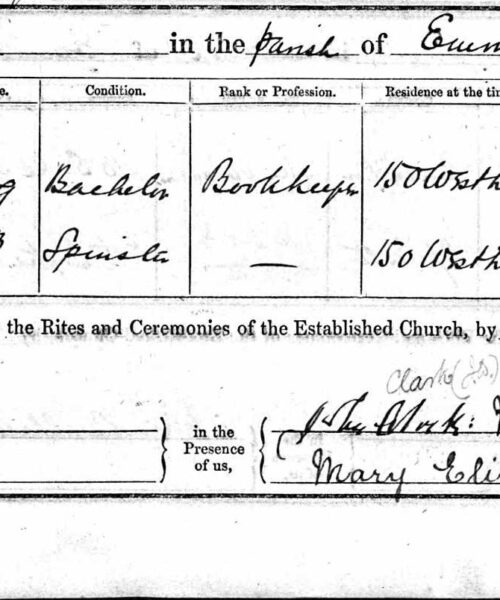 in the parish of Emm
e. Condition. Rank or Profession. Residence at the tim
9 Bachelor Bookkeeper 150 Westh
3 Spinster — 150 Westh
the Rites and Ceremonies of the Established Church, by
Clarke (J.D.)
in the
Presence
of us,
John
Mary Eliz